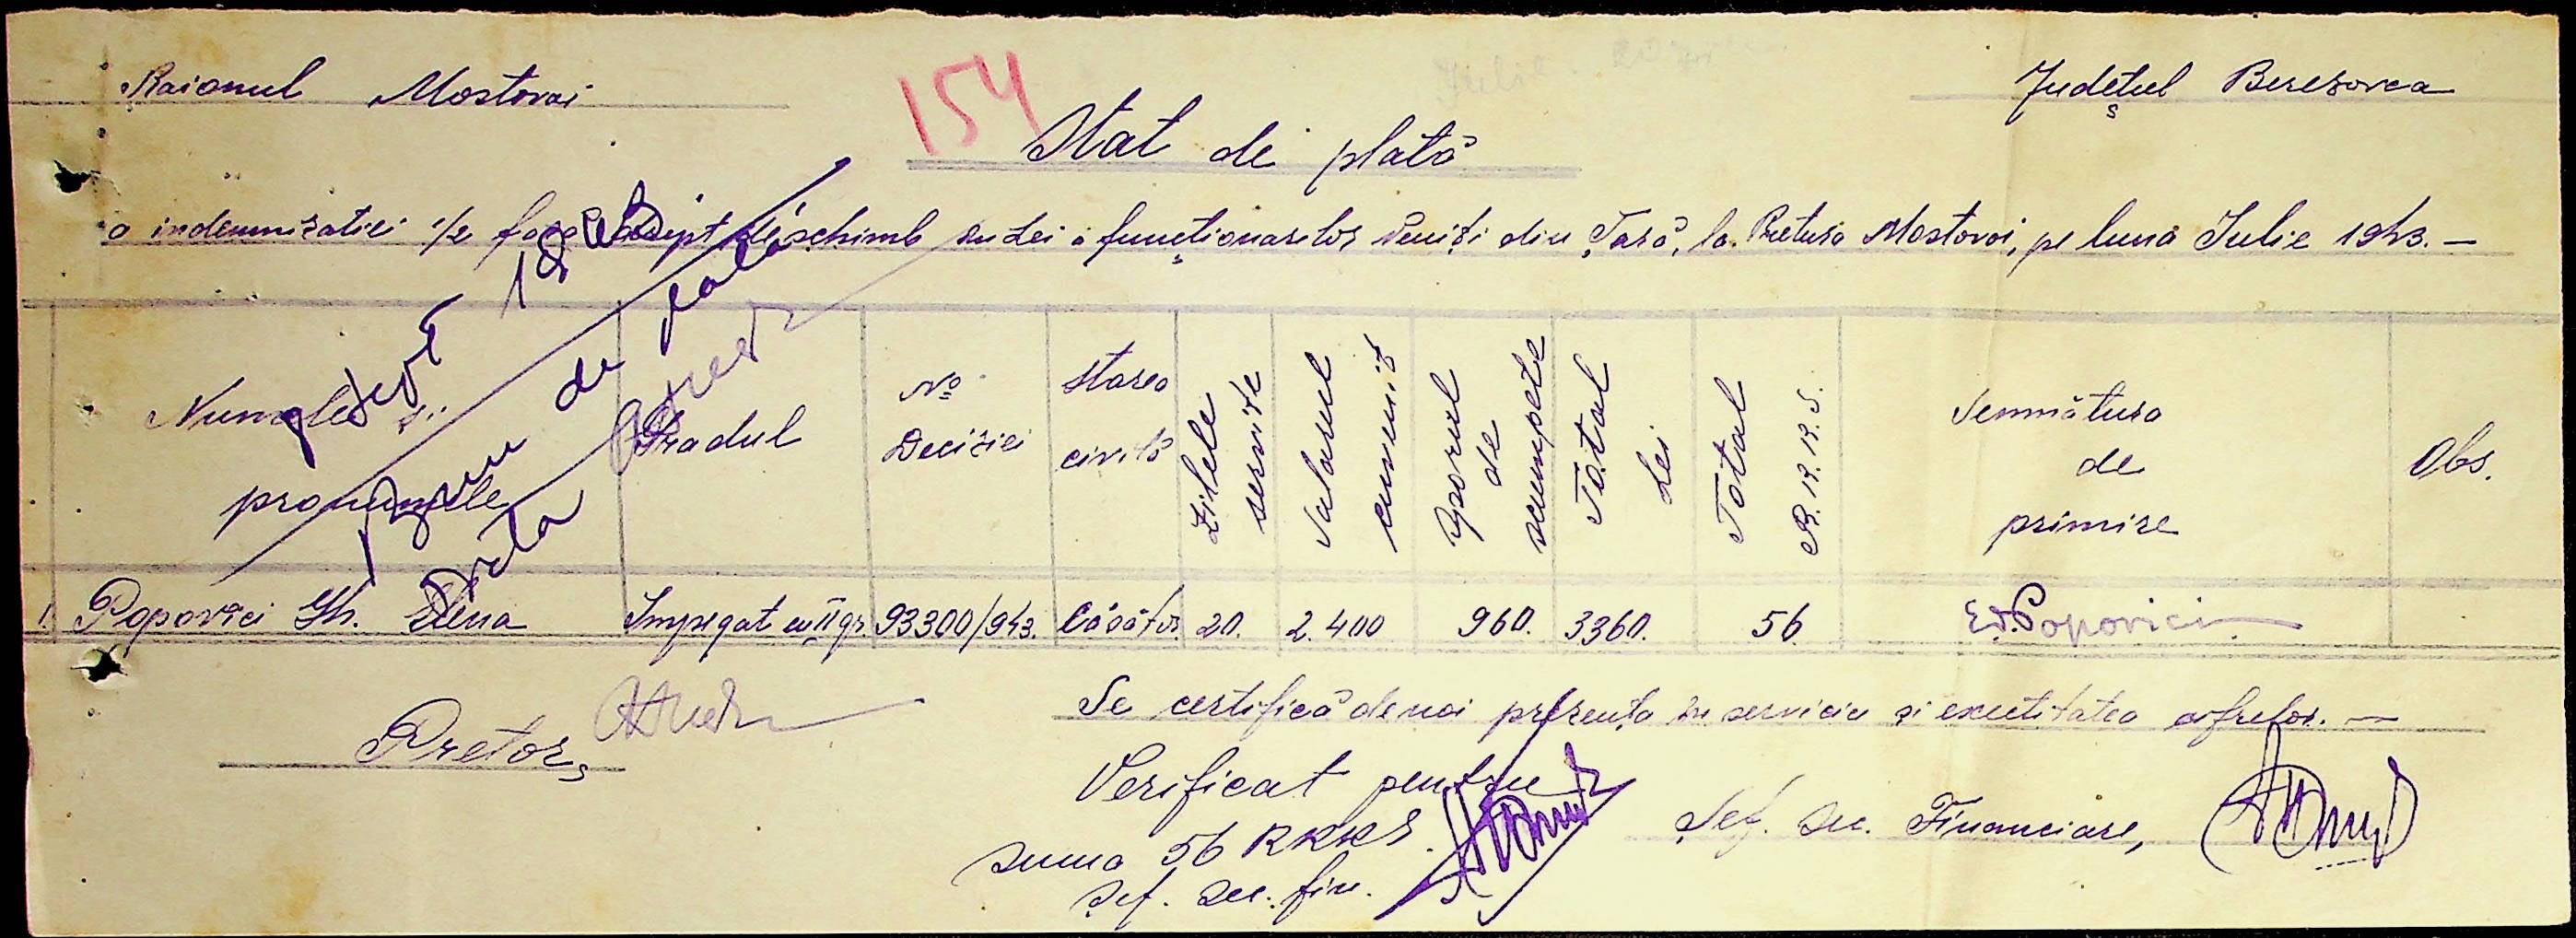 154
Raionul Mostovoi
Județul Berezovca
Stat de plată
a indemnizatiei fără drept de schimb în Lei a funcționarilor veniți din Țară, la Pretura Mostovoi, pe luna Iulie 1943. —
Numele și pronumele
Gradul
No Deciziei
Starea civilă
Zilele servite
Salarul cuvenit
Sporul de scumpete
Total Lei
Total R.K.K.S.
Semnătura de primire
Obs.
Bun de plată
1. Popovici Gh. Elena Impegat cu II gr. 93300/943. Căsăto 20. 2.400 960. 3360. 56. Popovici
Se certifică de noi prezența în serviciu și exectitatea cifrelor. —
Pretor,
Verificat pentru
suma 56 RKKS.
Șef. Sec. fin.
Șef. Sec. Financiare,